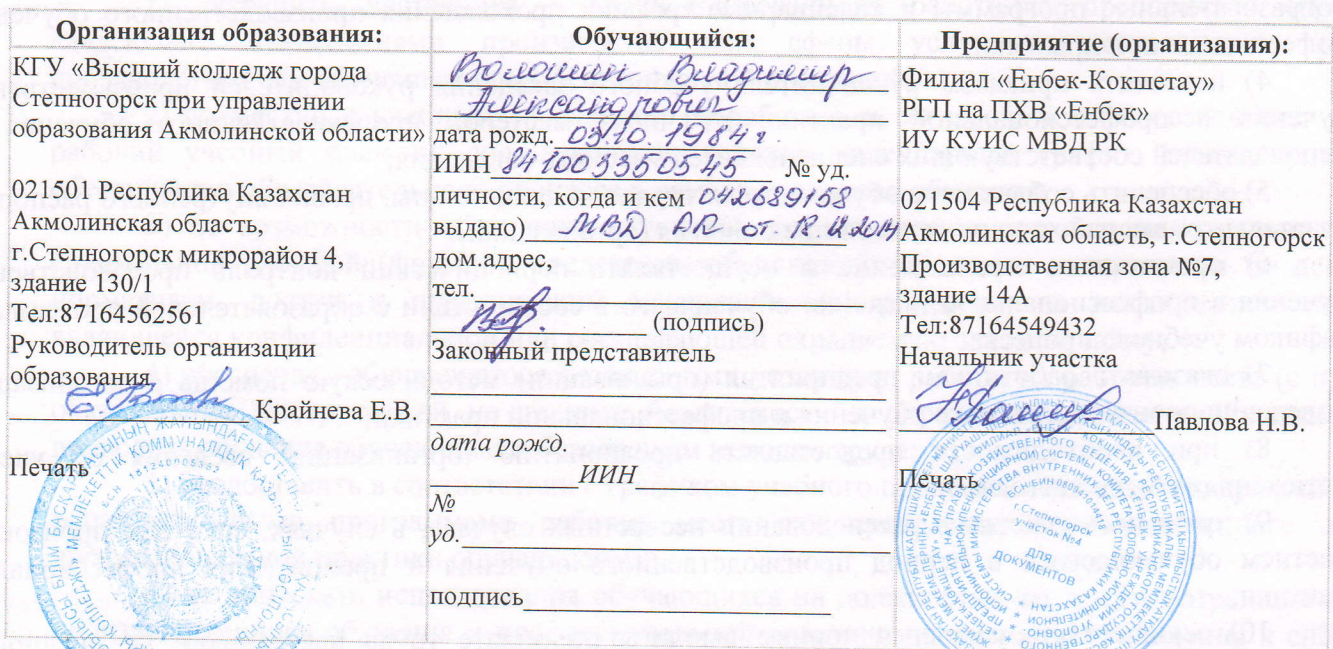 Организация образования:
КГУ «Высший колледж города
Степногорск при управлении
образования Акмолинской области»
021501 Республика Казахстан
Акмолинская область,
г.Степногорск микрорайон 4,
здание 130/1
Тел:87164562561
Руководитель организации
образования,
Крайнева Е.В.
Печать
Обучающийся:
Волошин Владимир
Александрович
дата рожд. 03.10.1984г
ИИН 841003350545 № уд.
личности, когда и кем 042689158
выдано) МВД от 18.11.2014
дом.адрес,
тел.
(подпись)
Законный представитель
дата рожд.
ИИН
№
уд.
подпись
Предприятие (организация):
Филиал «Енбек-Кокшетау»
РГП на ПХВ «Енбек»
ИУ КУИС МВД РК
021504 Республика Казахстан
Акмолинская область, г.Степногорск
Производственная зона №7,
здание 14А
Тел:87164549432
Начальник участка
Павлова Н.В.
Печать
г.Степногорск
участок №4
ДЛЯ
ДОКУМЕНТОВ